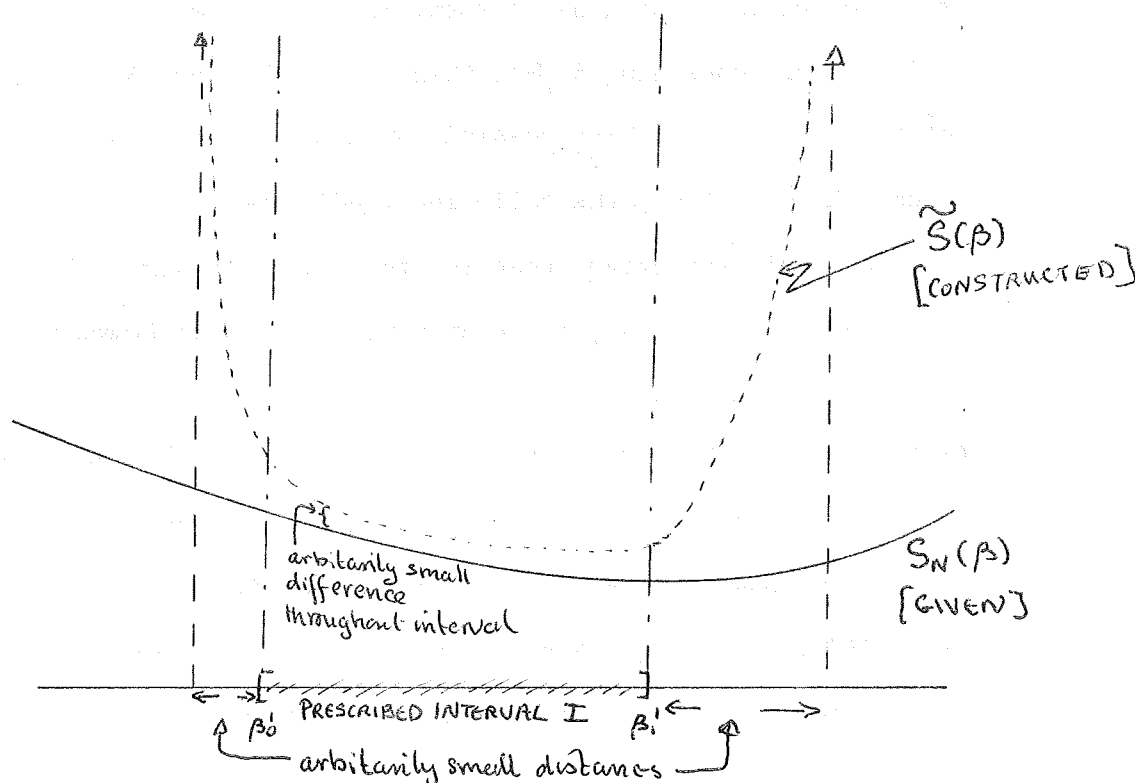 S̃(β)
[CONSTRUCTED]
arbitarily small
difference
throughout interval
S_N(β)
[GIVEN]
β₀' PRESCRIBED INTERVAL I β₁'
arbitarily small distances